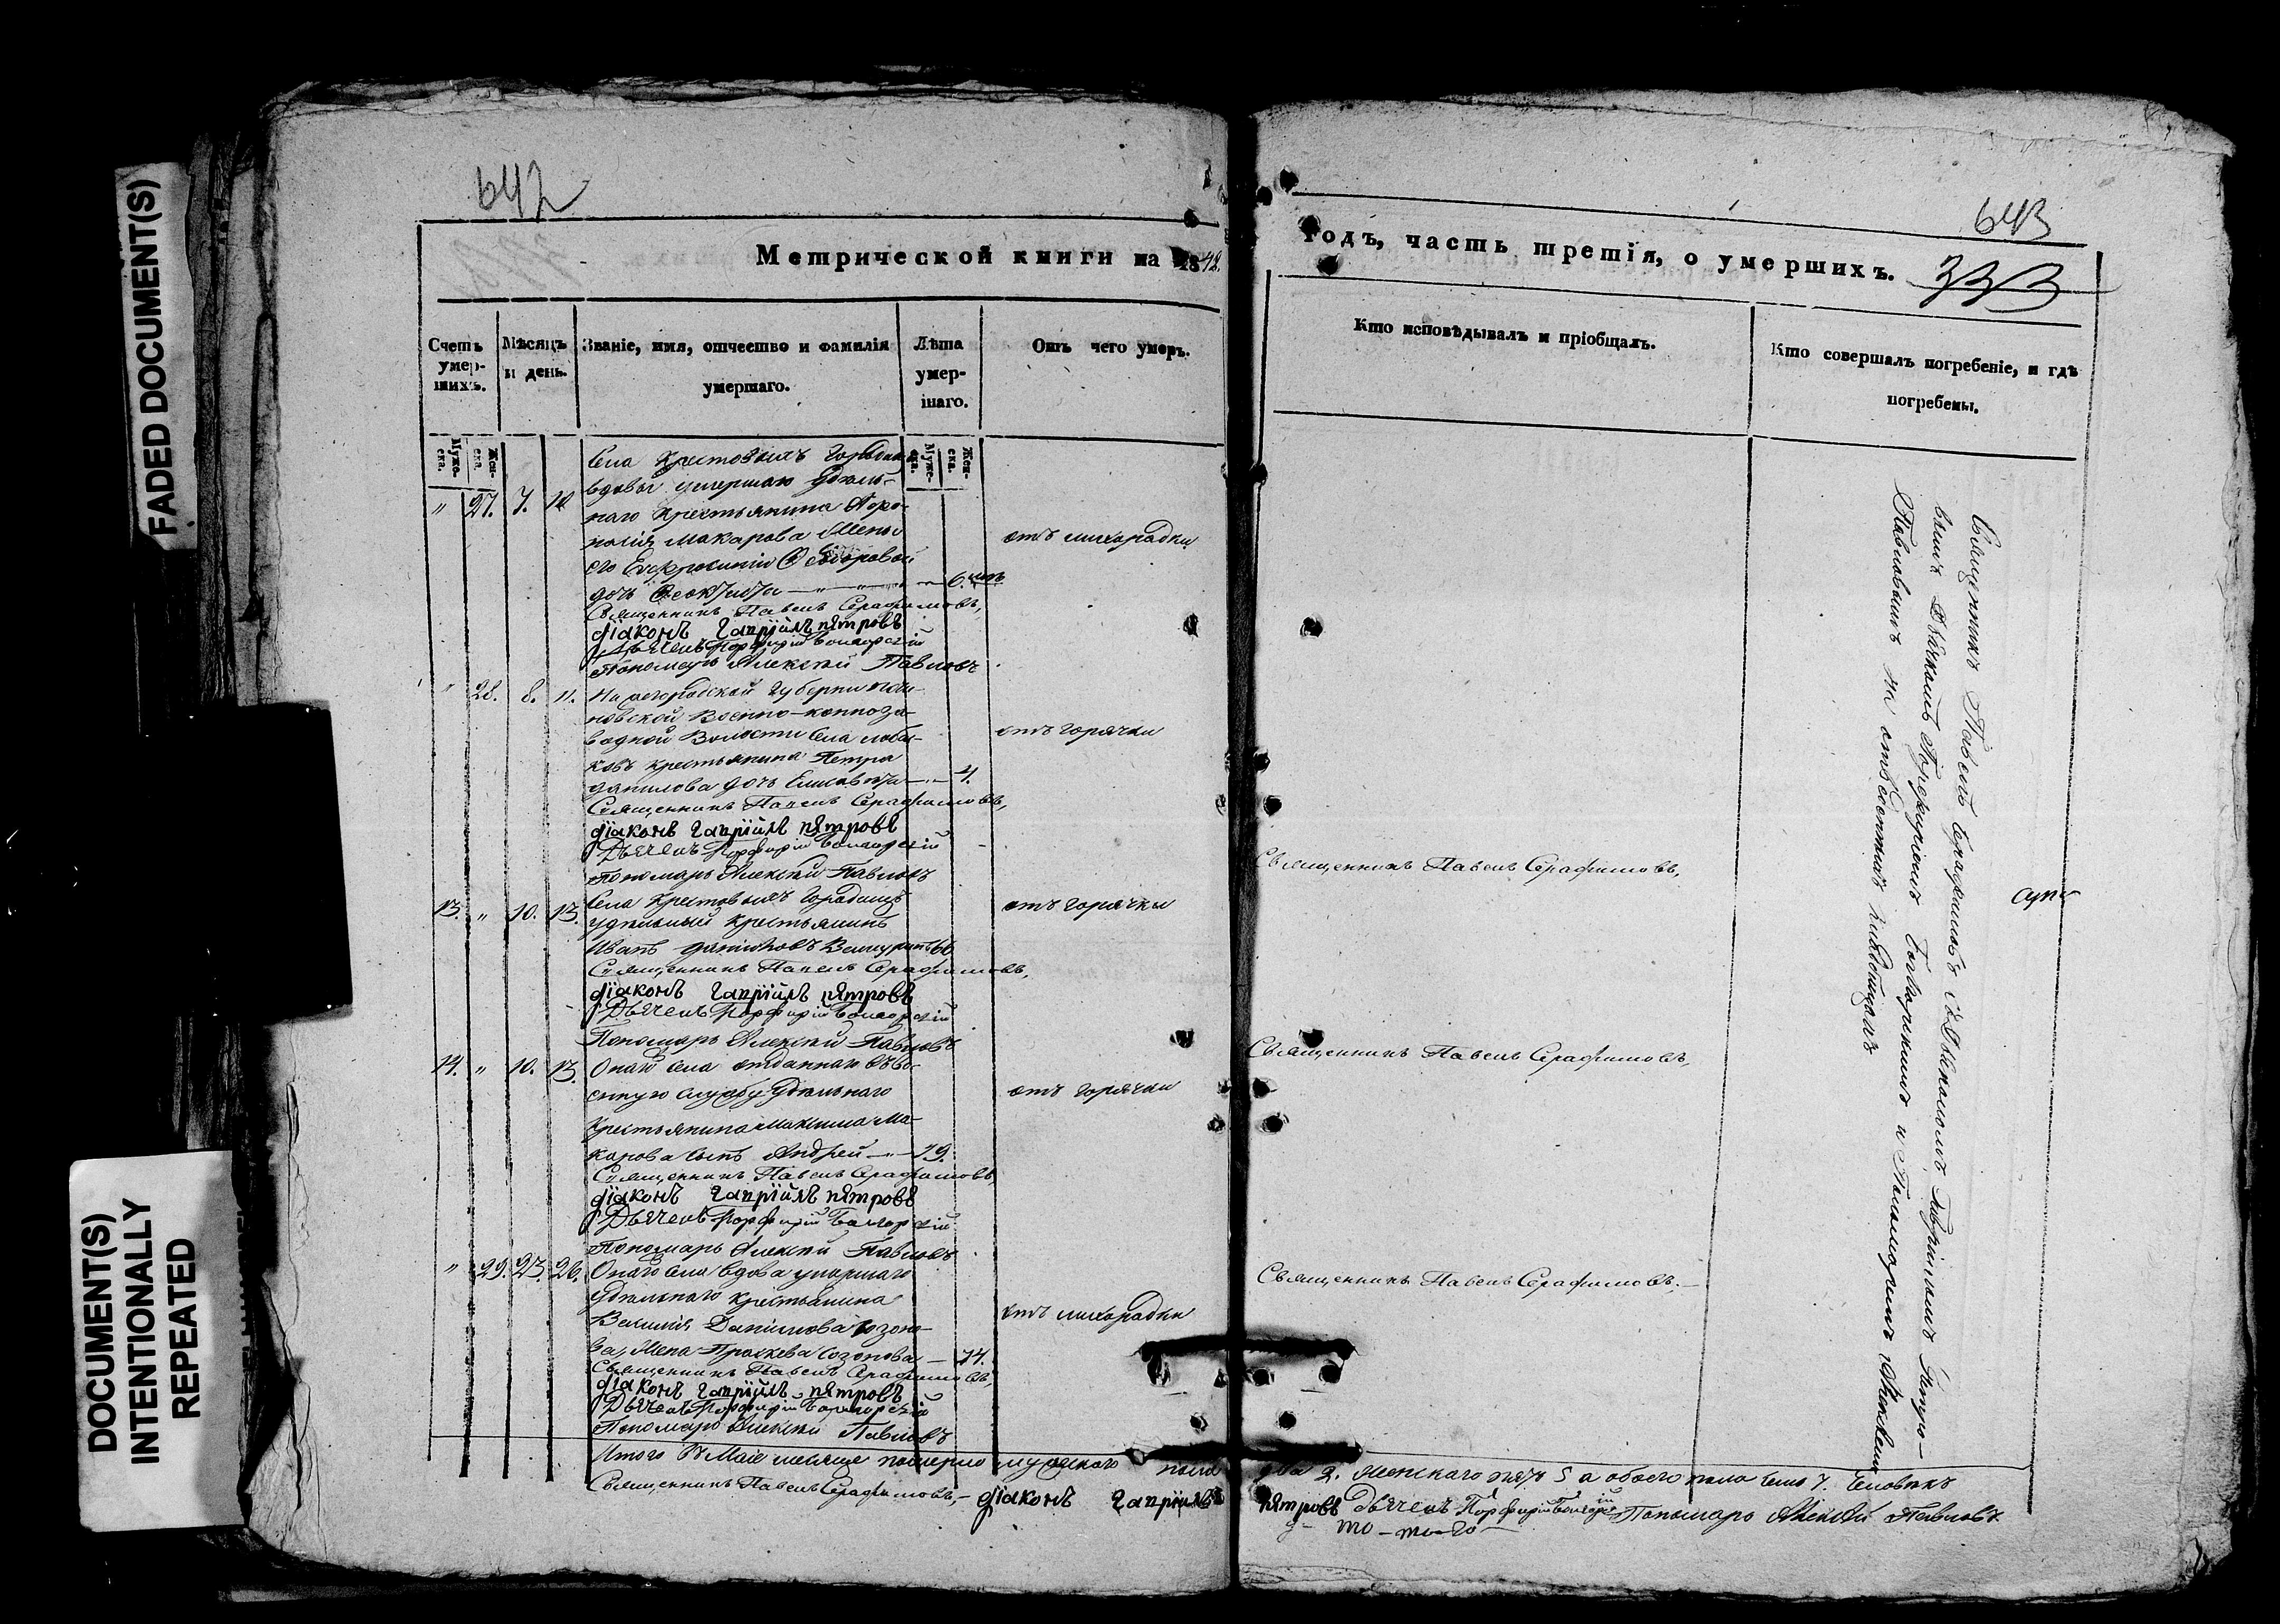 FADED DOCUMENT(S)
DOCUMENT(S)
INTENTIONALLY
REPEATED
642
Метрической книги на 1842.
Счетъ умер-шихъ.
Мѣсяцъ и день.
Званіе, имя, отчество и фамилія умершаго.
Лѣта умер-шаго.
Отъ чего умеръ.
Муже-ска.
Жен-ска.
Муже-ска.
Жен-ска.
Села Крестовыхъ Городищь
вдовы умершаго Удѣль-
" 27. 7. 10 наго крестьянина
Макарова Жены
отъ лихорадки
его Евфросиніи Ѳедоровой
дочь Ѳеоктиста 6. лѣтъ
Священникъ Павелъ Серафимовъ,
діаконъ Гавріилъ Петровъ
Дьячекъ Порфирій
Пономарь Алексѣй Павловъ
" 28. 8. 11. губерніи
Военно-конноза-
водной Волости Села
отъ горячки
крестьянина Петра
Данилова дочь Елисавета 4.
Священникъ Павелъ Серафимовъ,
діаконъ Гавріилъ Петровъ
Дьячекъ Порфирій
Пономарь Алексѣй Павловъ
Села Крестовыхъ Городищь
13. " 10. 13. удѣльный крестьянинъ
отъ горячки
Иванъ
Священникъ Павелъ Серафимовъ,
діаконъ Гавріилъ Петровъ
Дьячекъ Порфирій
Пономарь Алексѣй Павловъ
14. " 10. 13. Онаго села отданнаго въ во-
енную службу Удѣльнаго
отъ горячки
крестьянина Максима Ма-
карова сынъ Андрей 19.
Священникъ Павелъ Серафимовъ,
діаконъ Гавріилъ Петровъ
Дьячекъ Порфирій
Пономарь Алексѣй Павловъ
" 29. 23. 26. Онаго села вдова умершаго
Удѣльнаго крестьянина
отъ лихорадки
Василія Данилова Созоно-
ва, Жена Праскева Созонова 74.
Священникъ Павелъ Серафимовъ,
діаконъ Гавріилъ Петровъ
Дьячекъ Порфирій
Пономарь Алексѣй Павловъ
Итого въ Маіе месяце померло мужескаго пола
Священникъ Павелъ Серафимовъ, діаконъ Гавріилъ
643
годъ, часть третія, о умершихъ.
333
Кто исповѣдывалъ и пріобщалъ.
Кто совершалъ погребеніе, и гдѣ погребены.
Священникъ Павелъ Серафимовъ,
Священникъ Павелъ Серафимовъ,
Священникъ Павелъ Серафимовъ.
Священникъ Павелъ Серафимовъ съ Діакономъ Гавріиломъ Петро-
вымъ Дьячкомъ Порфиріемъ и Пономаремъ Алексѣемъ
Павловымъ на отведенномъ кладбищѣ
два 2. Женскаго 5 а обоего пола 7. Человѣкъ
Петровъ Дьячекъ Порфирій Пономарь Алексѣй Павловъ